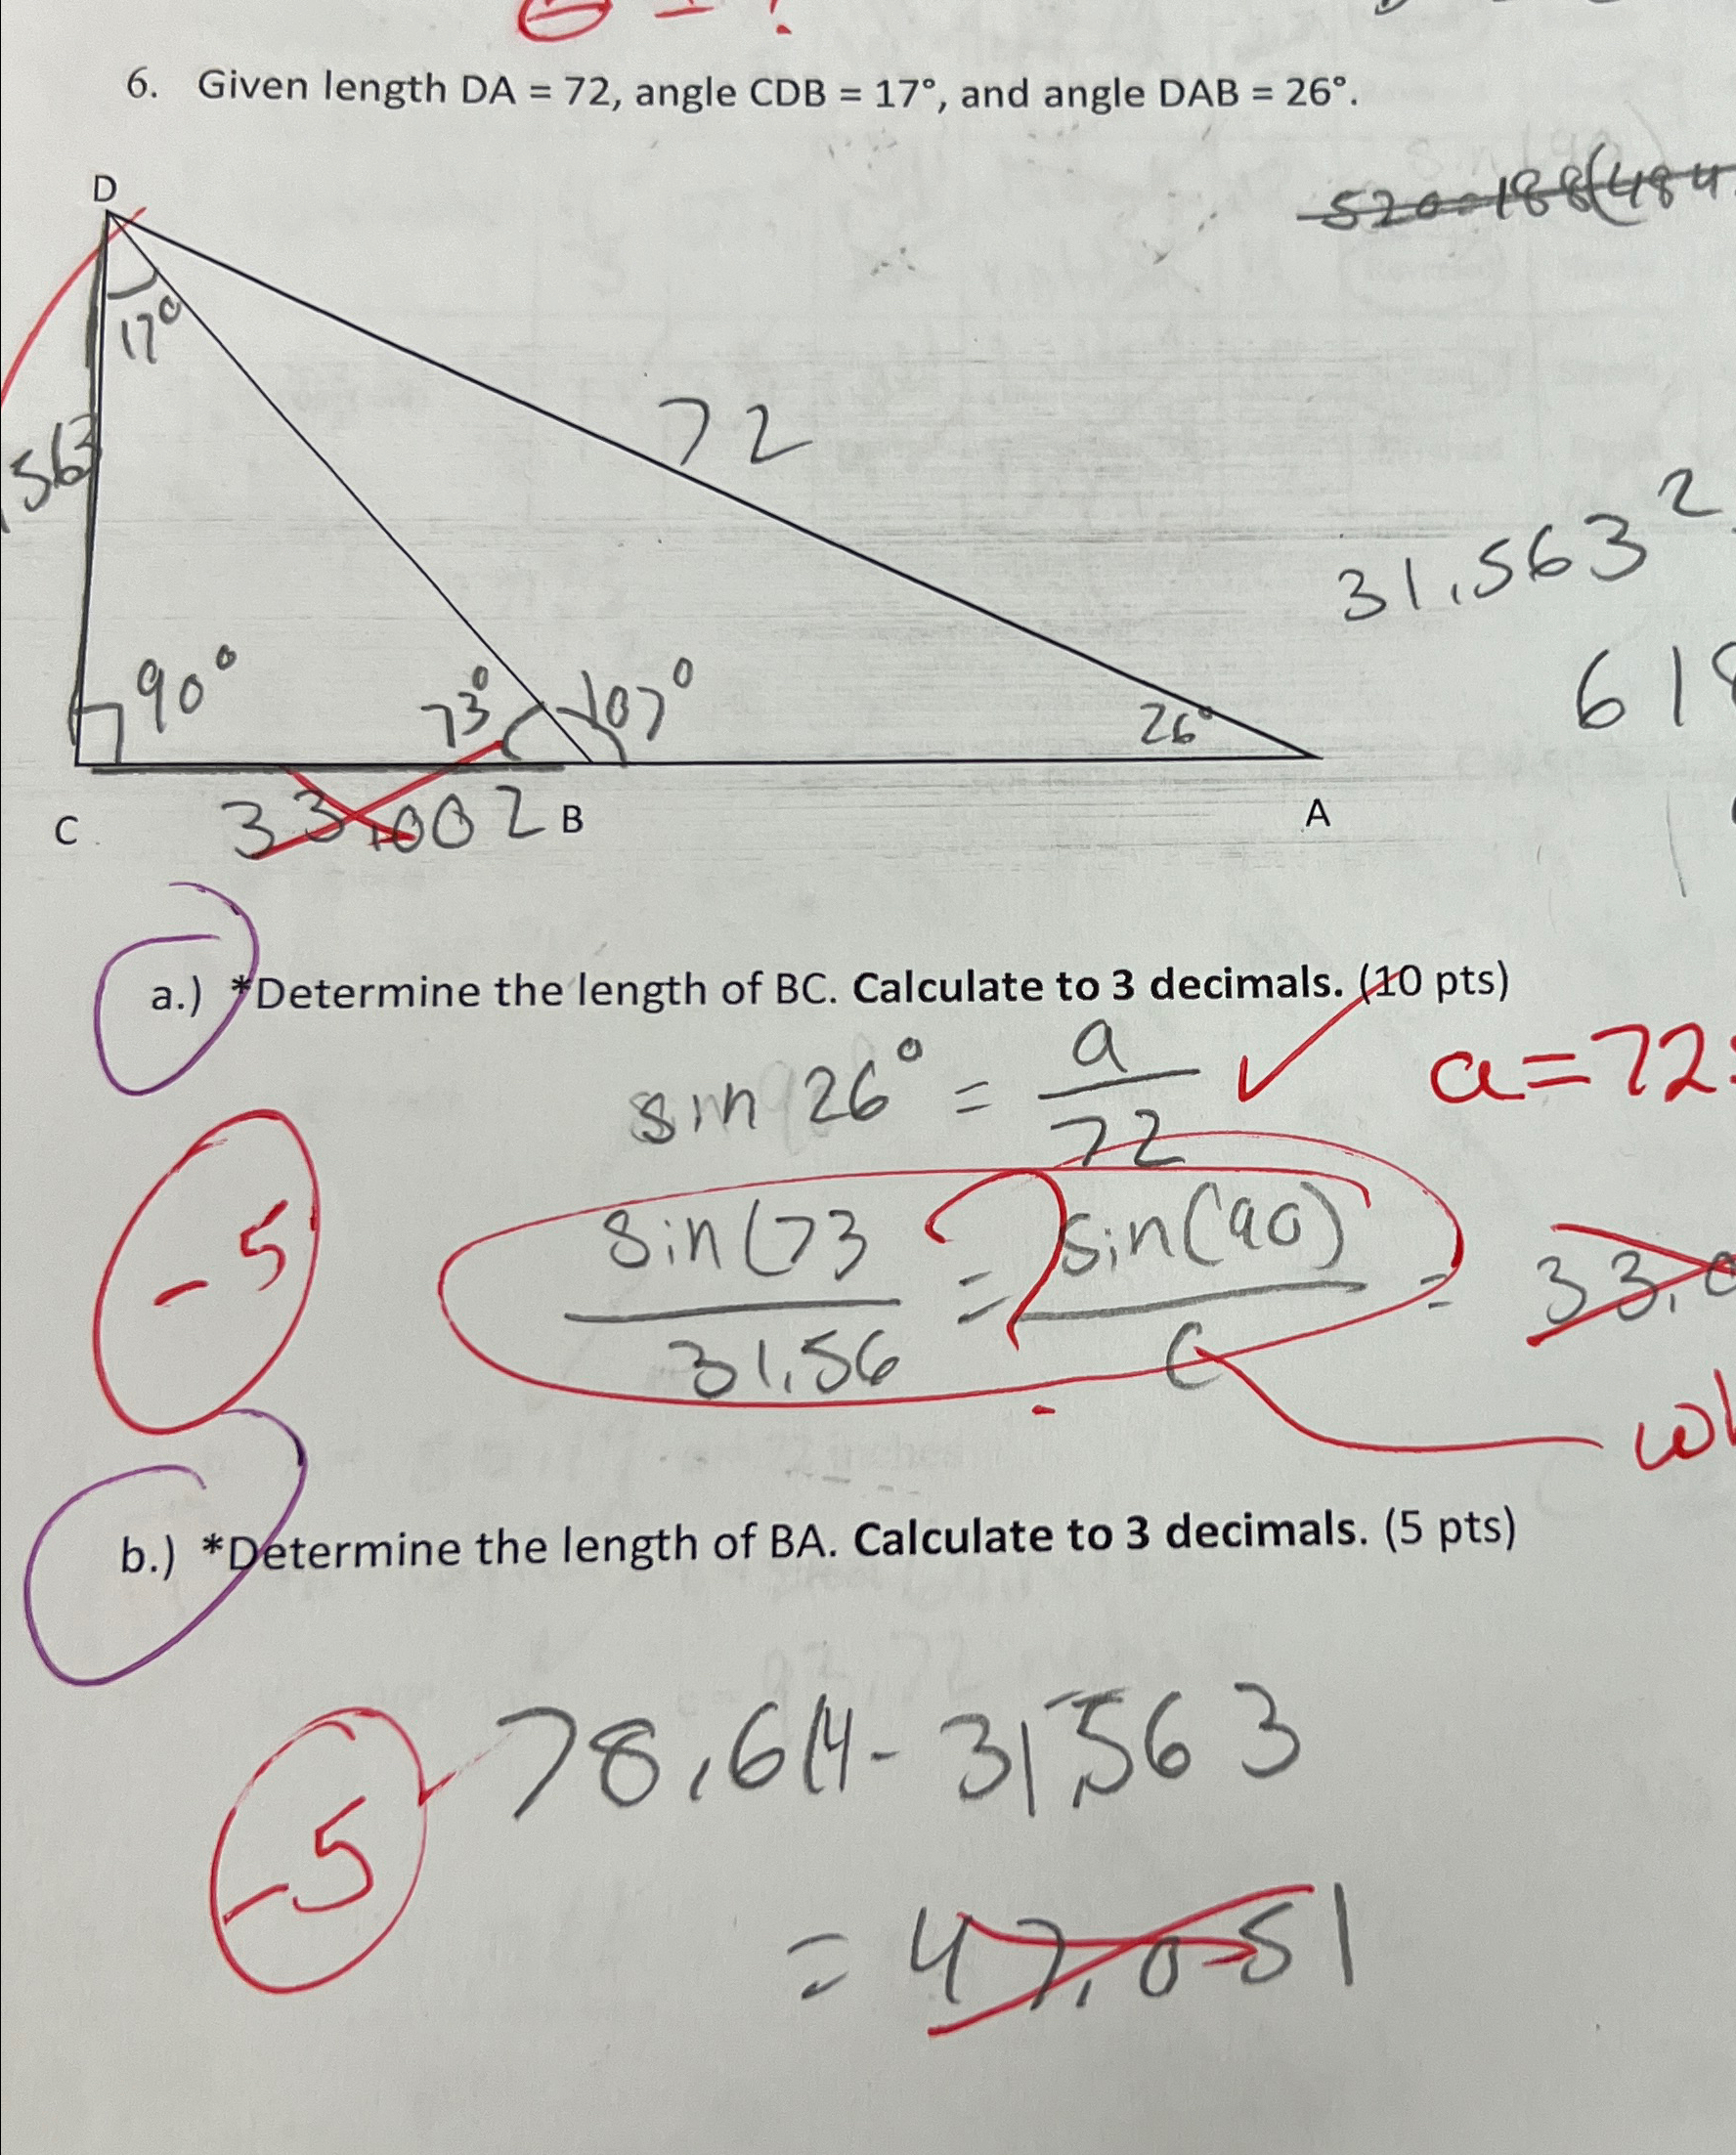 6. Given length DA = 72, angle CDB = 17°, and angle DAB = 26°.
D
17°
72
,563
31,563²
90°
73°
107°
26°
618
C
33,002
B
A
a.) *Determine the length of BC. Calculate to 3 decimals. (10 pts)
sin 26° = a/72
a=72
-5
sin(73/31,56 = sin(90)/C = 33,0
b.) *Determine the length of BA. Calculate to 3 decimals. (5 pts)
78,614-31,563
-5
= 47,051